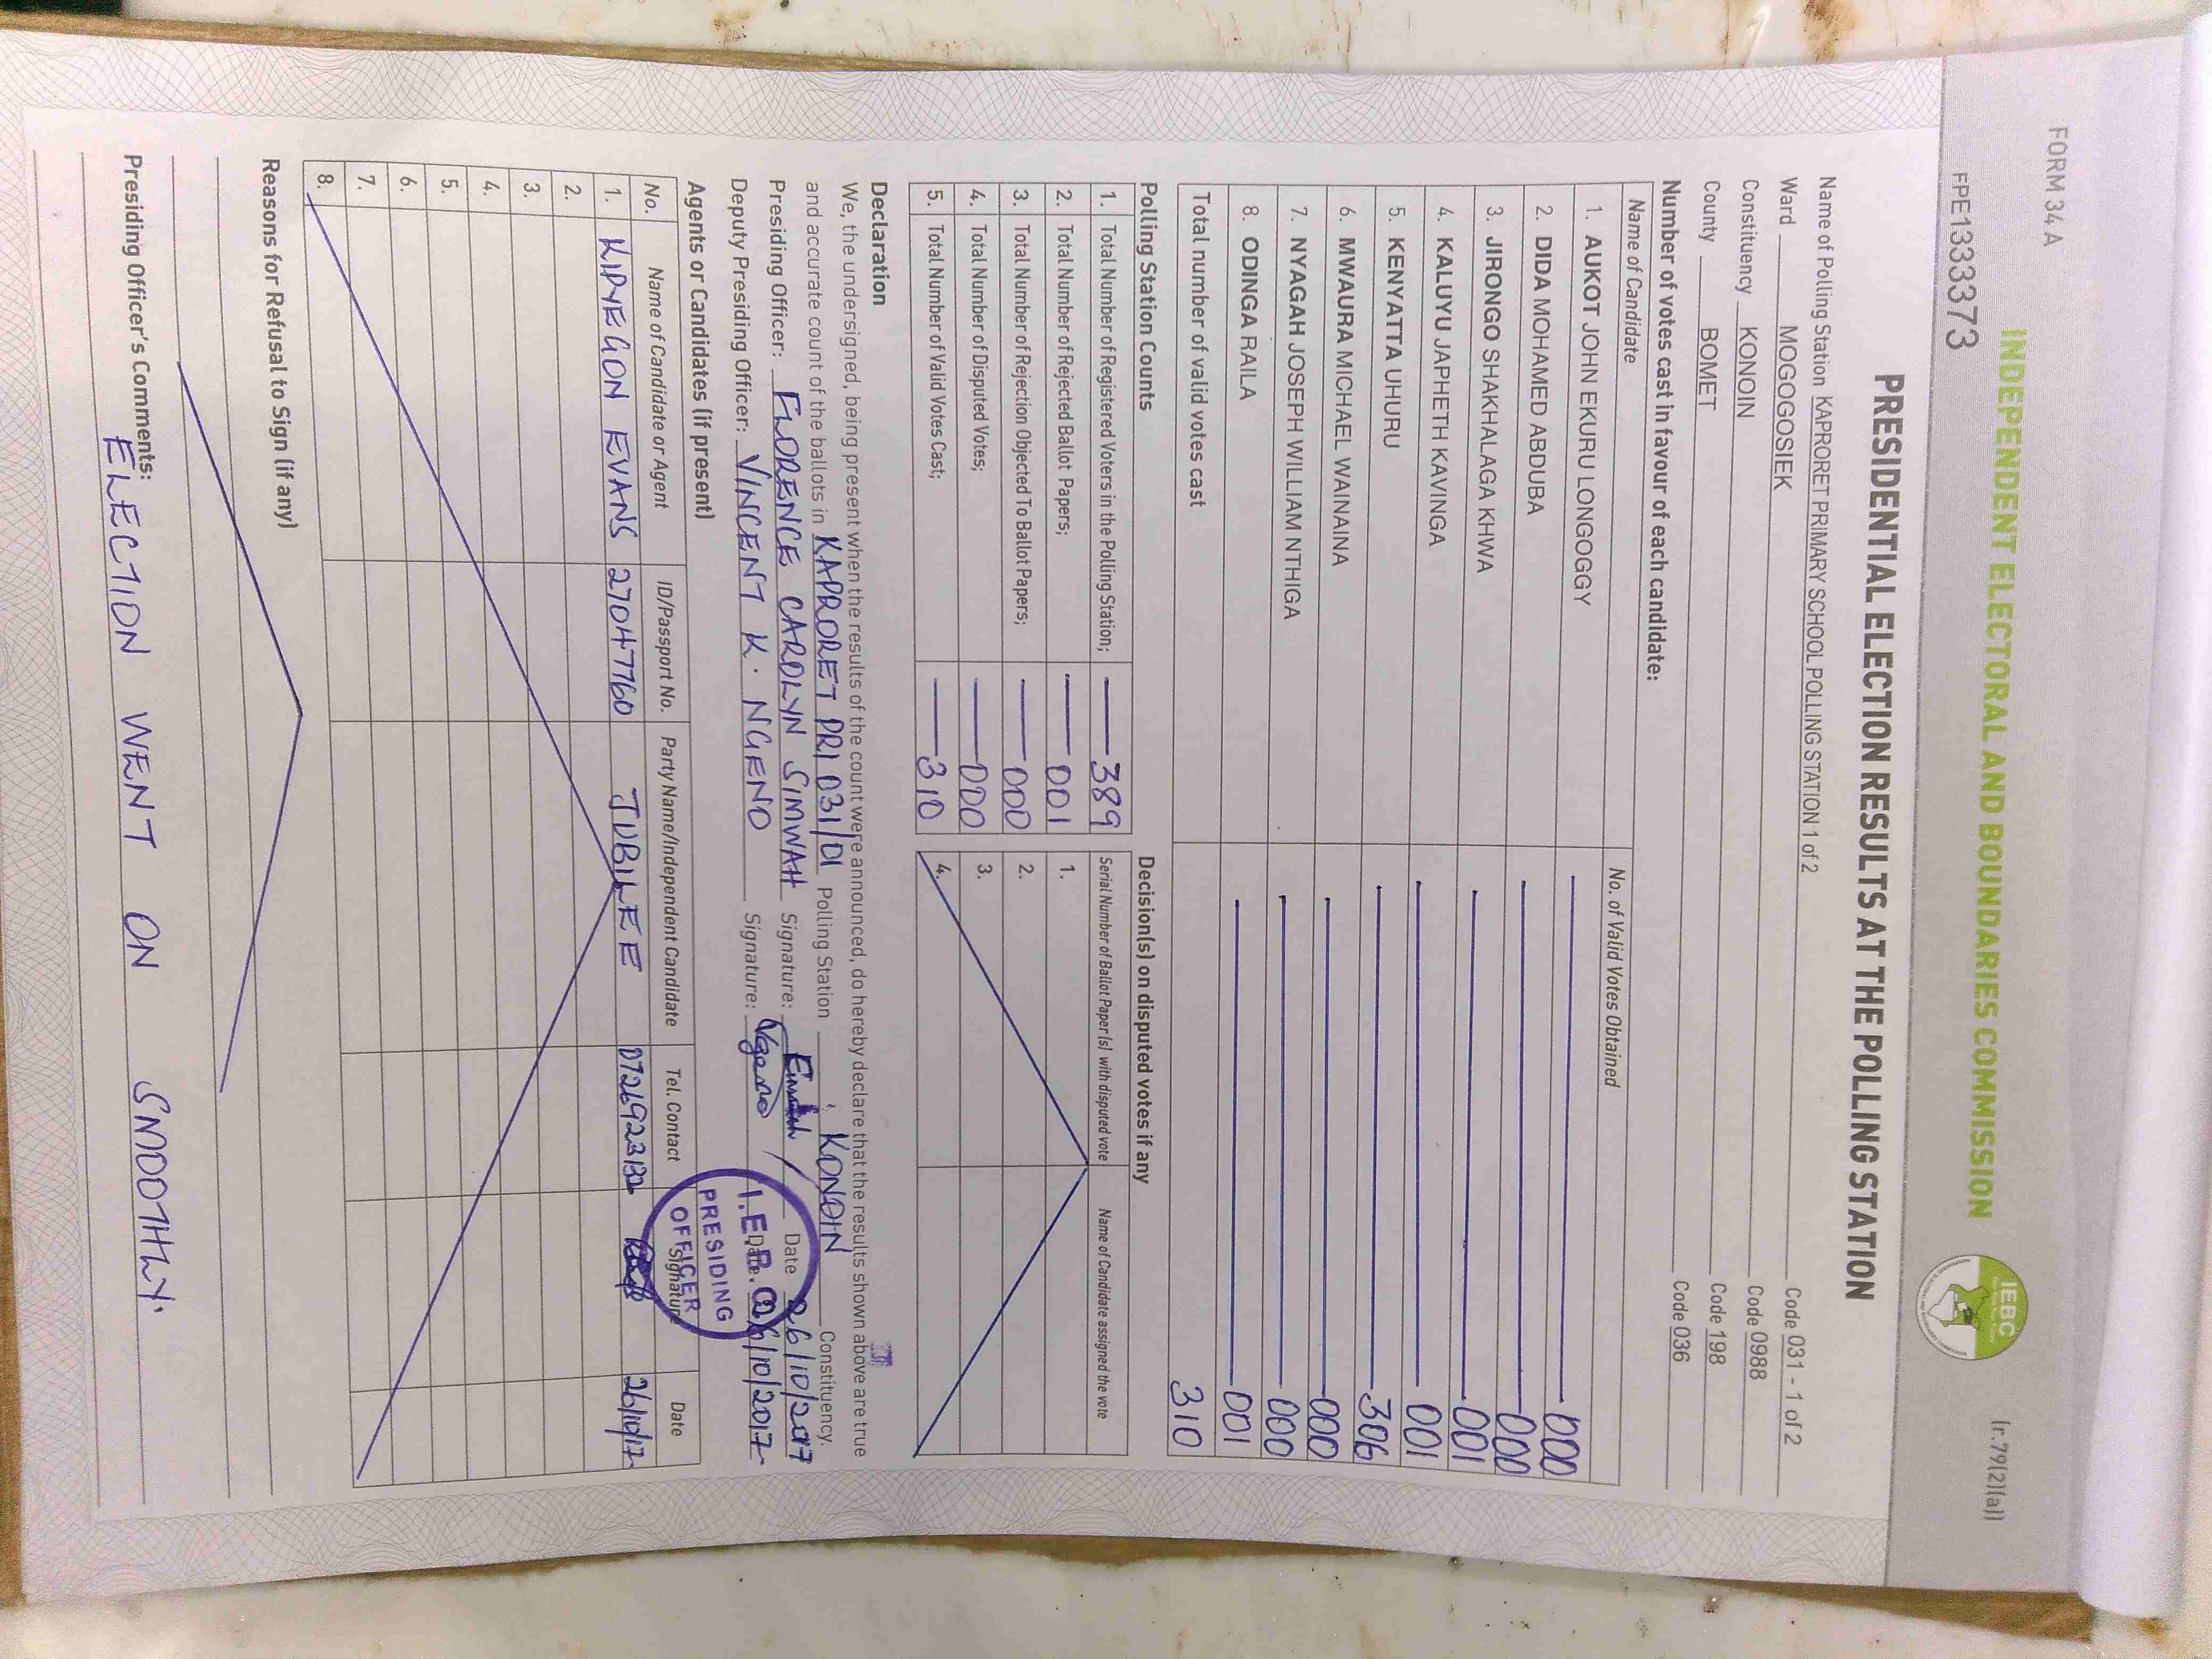 FORM 34 A
(r.79(2)(a))
INDEPENDENT ELECTORAL AND BOUNDARIES COMMISSION
IEBC
FPE1333373
PRESIDENTIAL ELECTION RESULTS AT THE POLLING STATION
Name of Polling Station KAPRORET PRIMARY SCHOOL POLLING STATION 1 of 2 Code 031 - 1 of 2
Ward MOGOGOSIEK Code 0988
Constituency KONOIN Code 198
County BOMET Code 036
Number of votes cast in favour of each candidate:
Name of Candidate No. of Valid Votes Obtained
1. AUKOT JOHN EKURU LONGOGGY 000
2. DIDA MOHAMED ABDUBA 000
3. JIRONGO SHAKHALAGA KHWA 001
4. KALUYU JAPHETH KAVINGA 001
5. KENYATTA UHURU 306
6. MWAURA MICHAEL WAINAINA 000
7. NYAGAH JOSEPH WILLIAM NTHIGA 000
8. ODINGA RAILA 001
Total number of valid votes cast 310
Polling Station Counts
1. Total Number of Registered Voters in the Polling Station; 389
2. Total Number of Rejected Ballot Papers; 001
3. Total Number of Rejection Objected To Ballot Papers; 000
4. Total Number of Disputed Votes; 000
5. Total Number of Valid Votes Cast; 310
Decision(s) on disputed votes if any
Serial Number of Ballot Paper(s) with disputed vote Name of Candidate assigned the vote
1.
2.
3.
4.
Declaration
We, the undersigned, being present when the results of the count were announced, do hereby declare that the results shown above are true
and accurate count of the ballots in KAPRORET PRI 031/01 Polling Station KONOIN Constituency.
Presiding Officer: FLORENCE CAROLYN SIMWAH Signature: Date 26/10/2017
Deputy Presiding Officer: VINCENT K. NGENO Signature: Date 26/10/2017
I.E.B.C
PRESIDING
OFFICER
Agents or Candidates (if present)
No. Name of Candidate or Agent ID/Passport No. Party Name/Independent Candidate Tel. Contact Signature Date
1. KIPYEGON EVANS 27047760 JUBILEE 0726923132 26/10/17
2.
3.
4.
5.
6.
7.
8.
Reasons for Refusal to Sign (if any)
Presiding Officer's Comments:
ELECTION WENT ON SMOOTHLY.